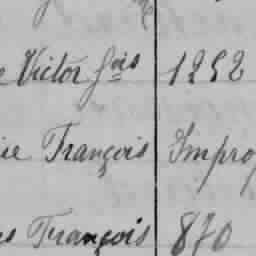 Victor fois 1252
François Impro
François 870